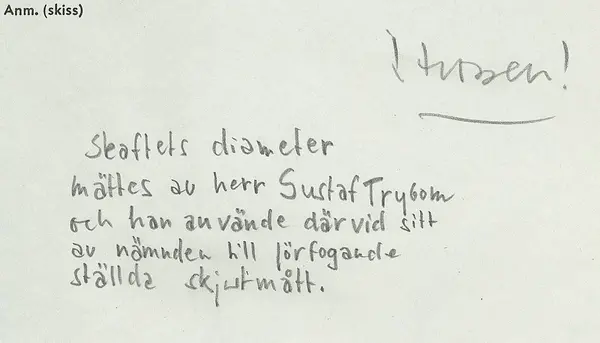 Anm. (skiss)
! tusen !
Skaftets diameter
mättes av herr Gustaf Trybom
och han använde därvid sitt
av nämnden till förfogande
ställda skjutmått.